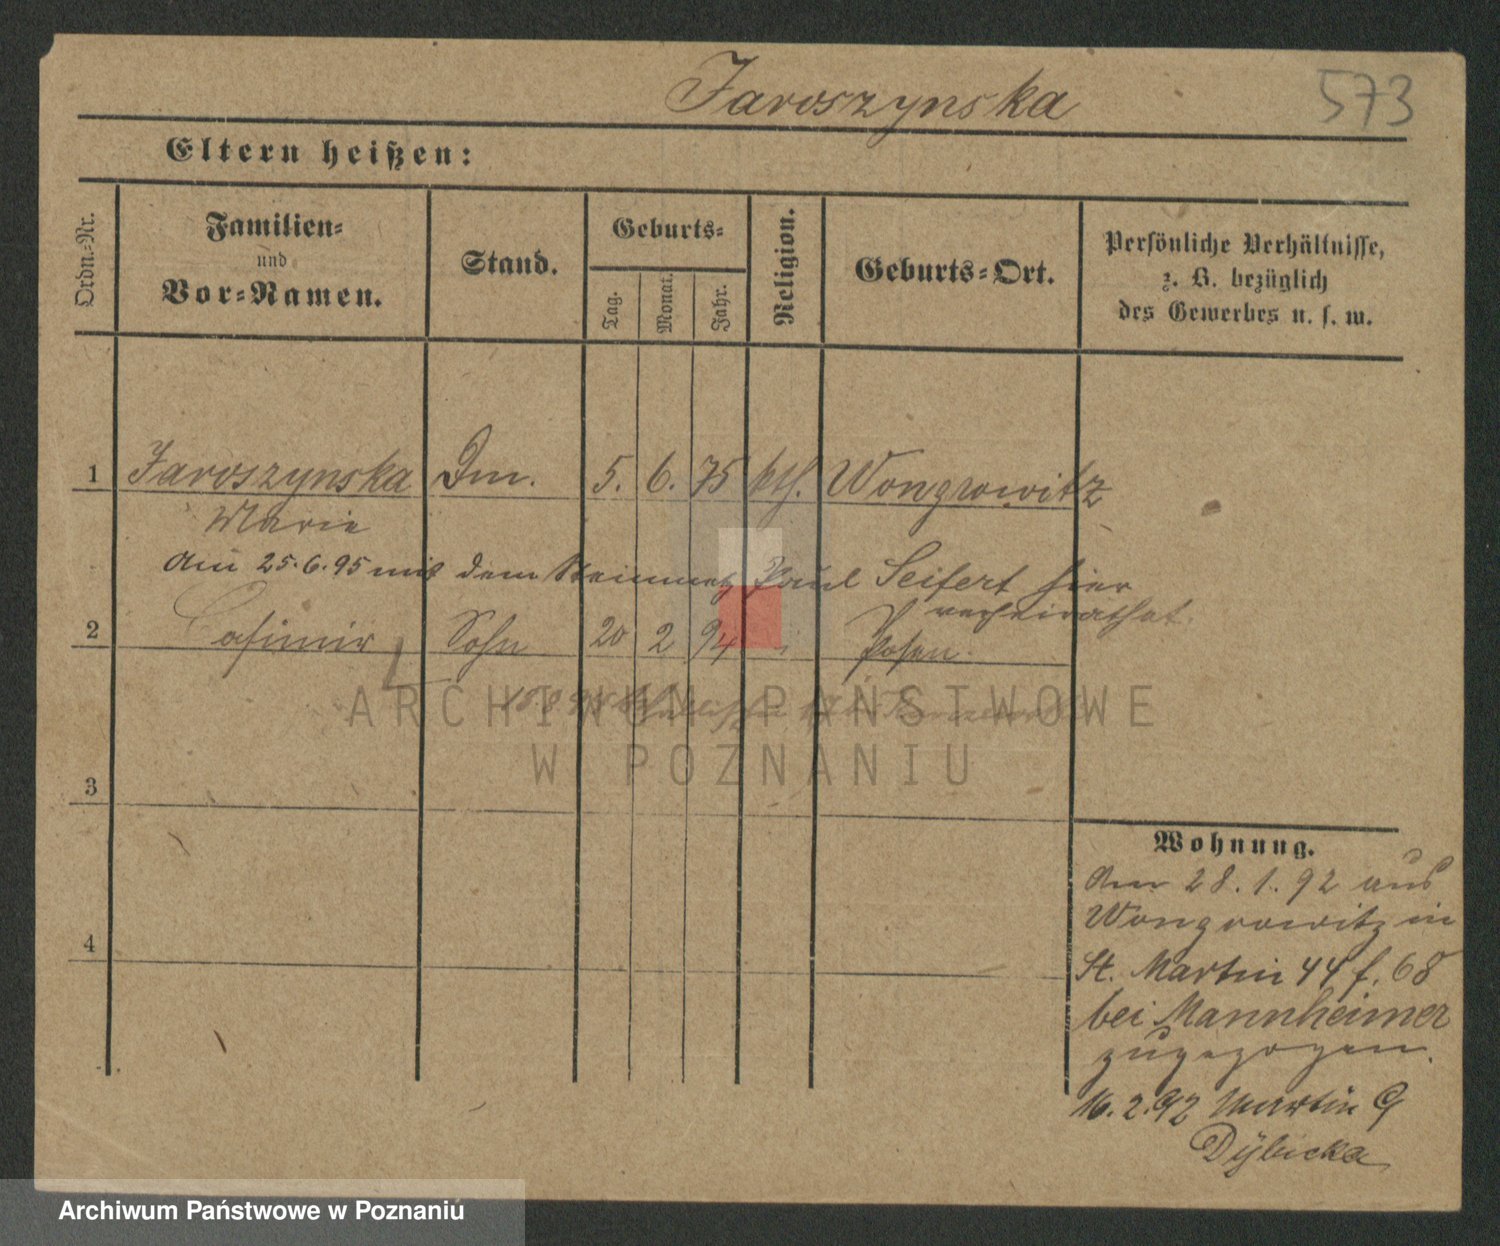 Jaroszynska
573
Eltern heißen:
Ordn.-Nr.
Familien-
und
Vor-Namen.
Stand.
Geburts-
Tag.
Monat.
Jahr.
Religion.
Geburts-Ort.
Persönliche Verhältnisse,
z. B. bezüglich
des Gewerbes u. s. w.
1 Jaroszynska Dm. 5. 6. 75 kth. Wongrowitz
Marie
Am 25.6.95 mit dem Steinmetz Paul Seifert hier
verheirathet.
2 Casimir Sohn 20 2 94 " Posen.
ARCHIWUM PAŃSTWOWE
W POZNANIU
3
4
Wohnung.
Am 28.1.92 aus
Wongrowitz in
St. Martin 44 f. 68
bei Mannheimer
zugezogen.
16.2.92 Martin 9
Dÿbicka
Archiwum Państwowe w Poznaniu